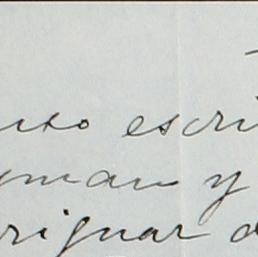 uxo escri
yman y
riguar d